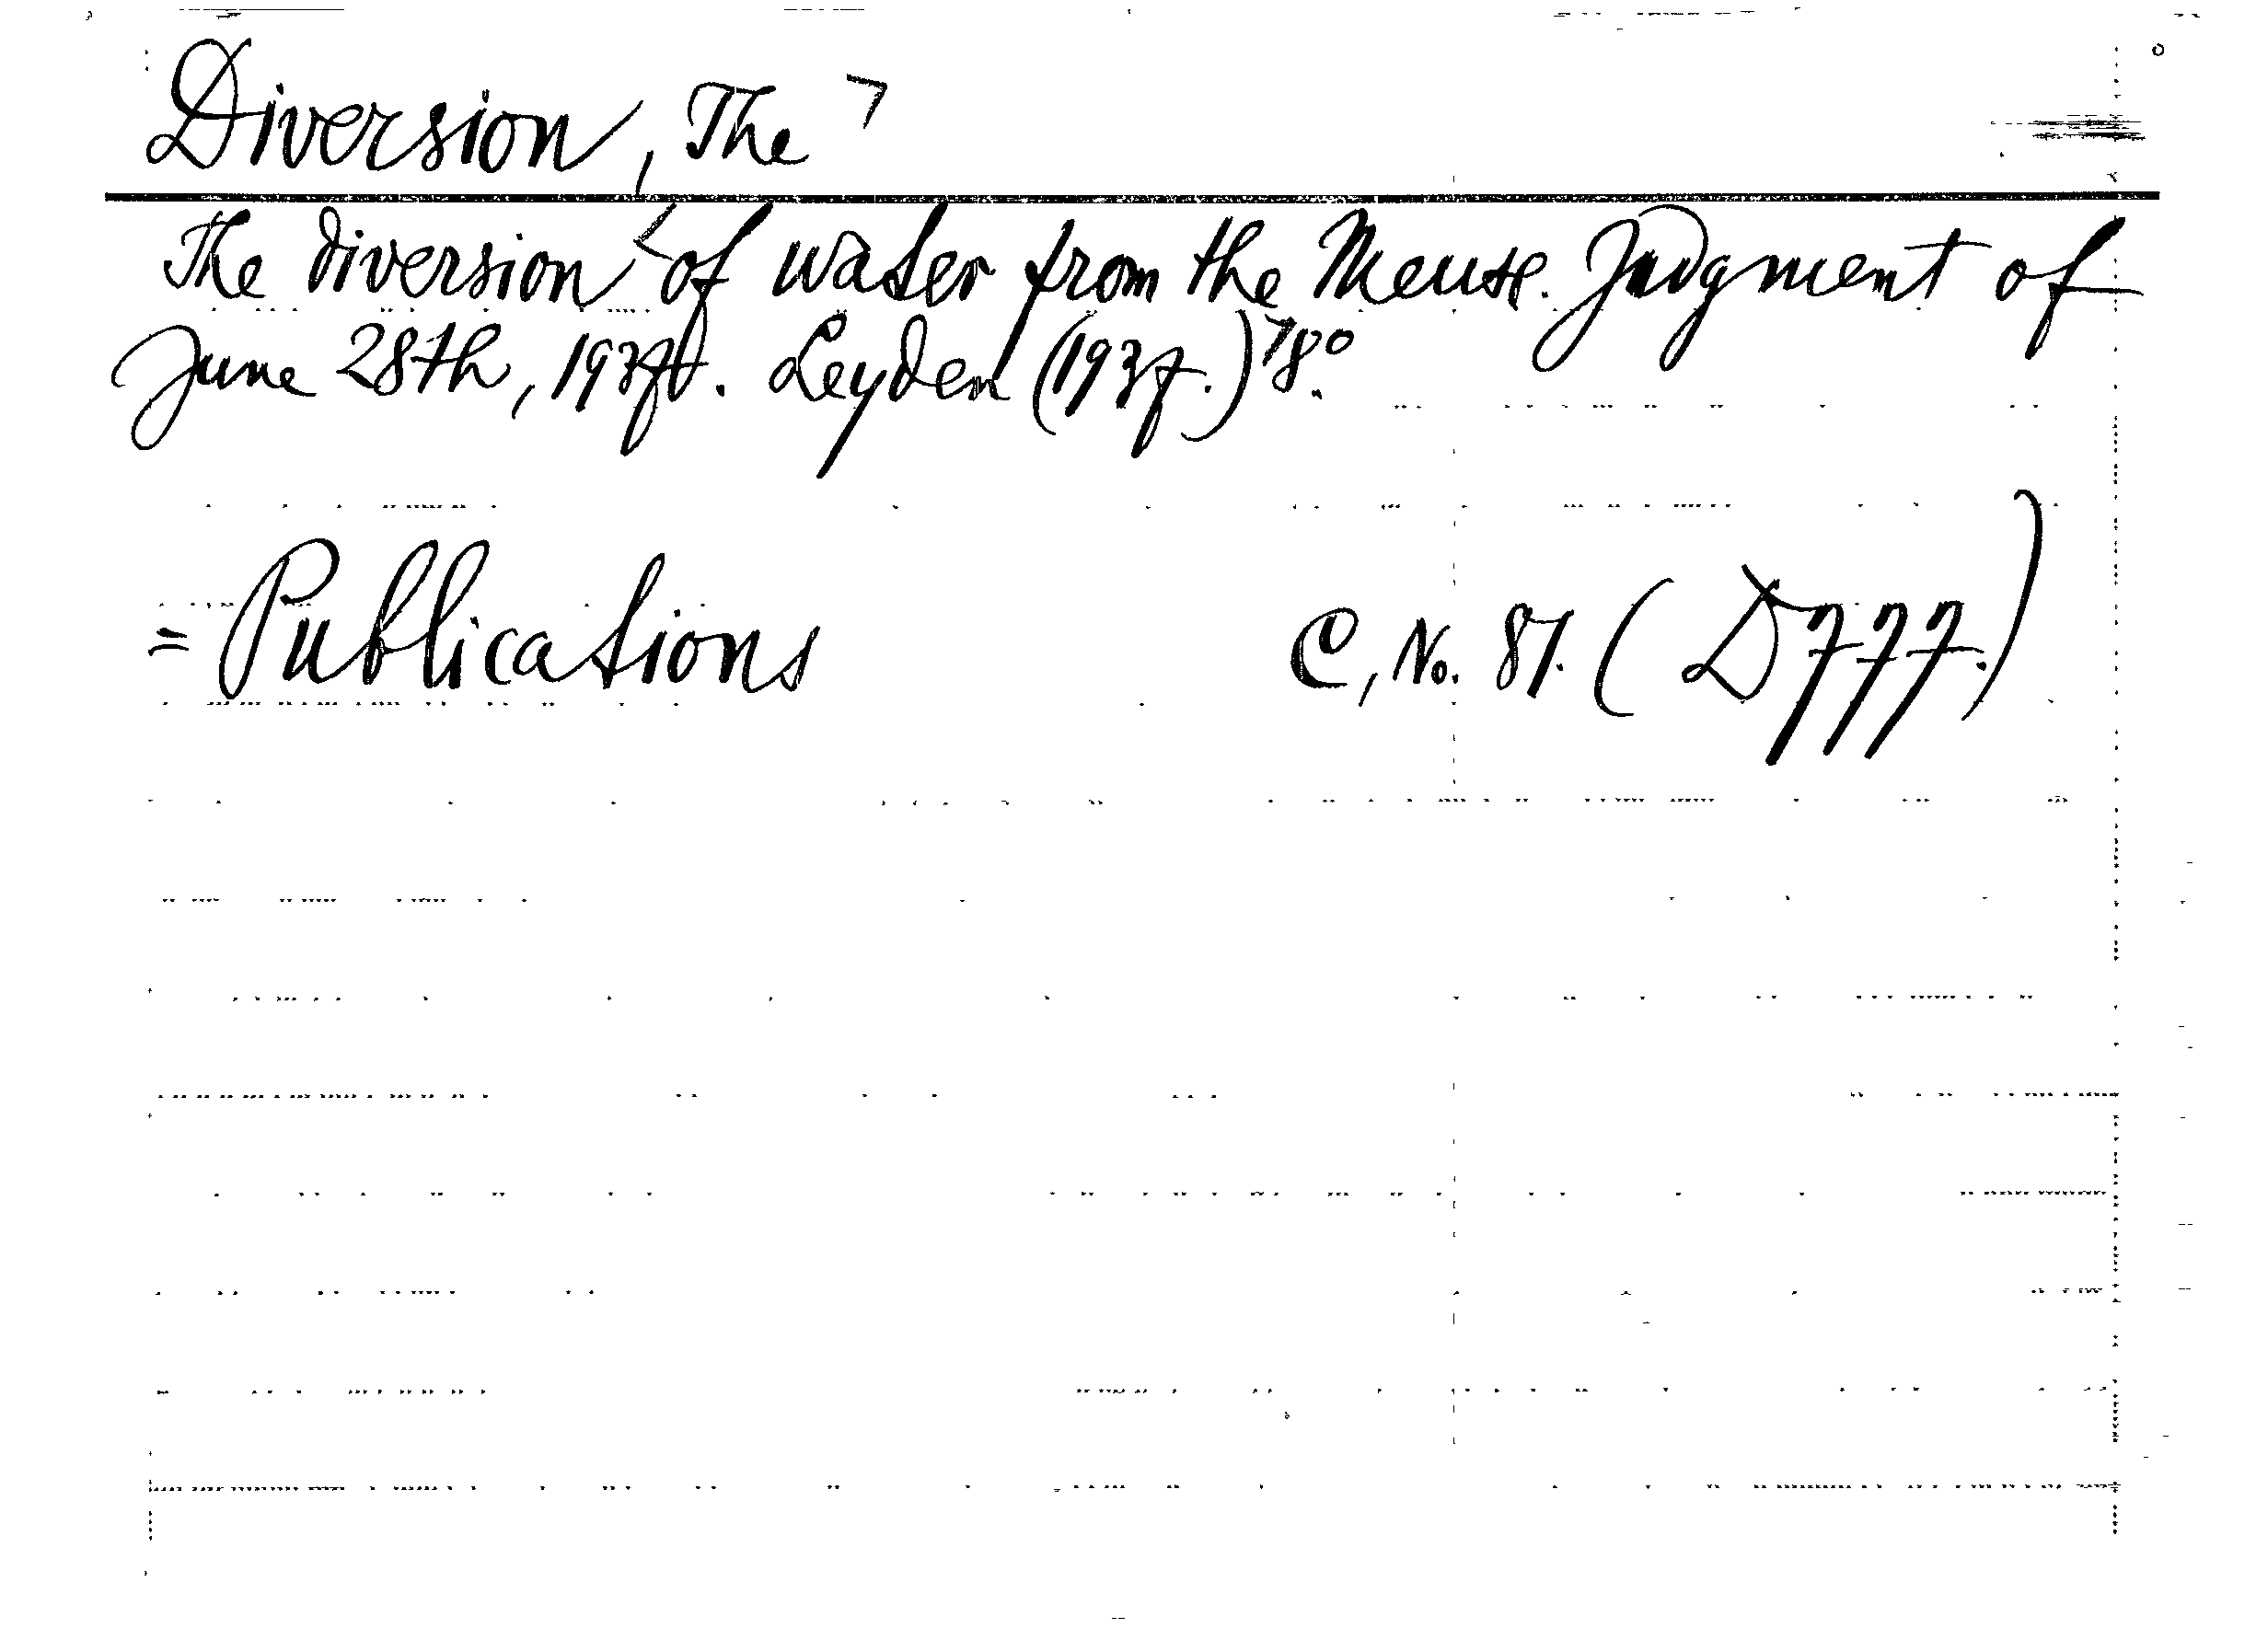 Diversion, The
The diversion of water from the Meuse. Judgment of
June 28th, 1937. Leyden (1937.) 8°.
= Publications C, No. 81. (D777.)